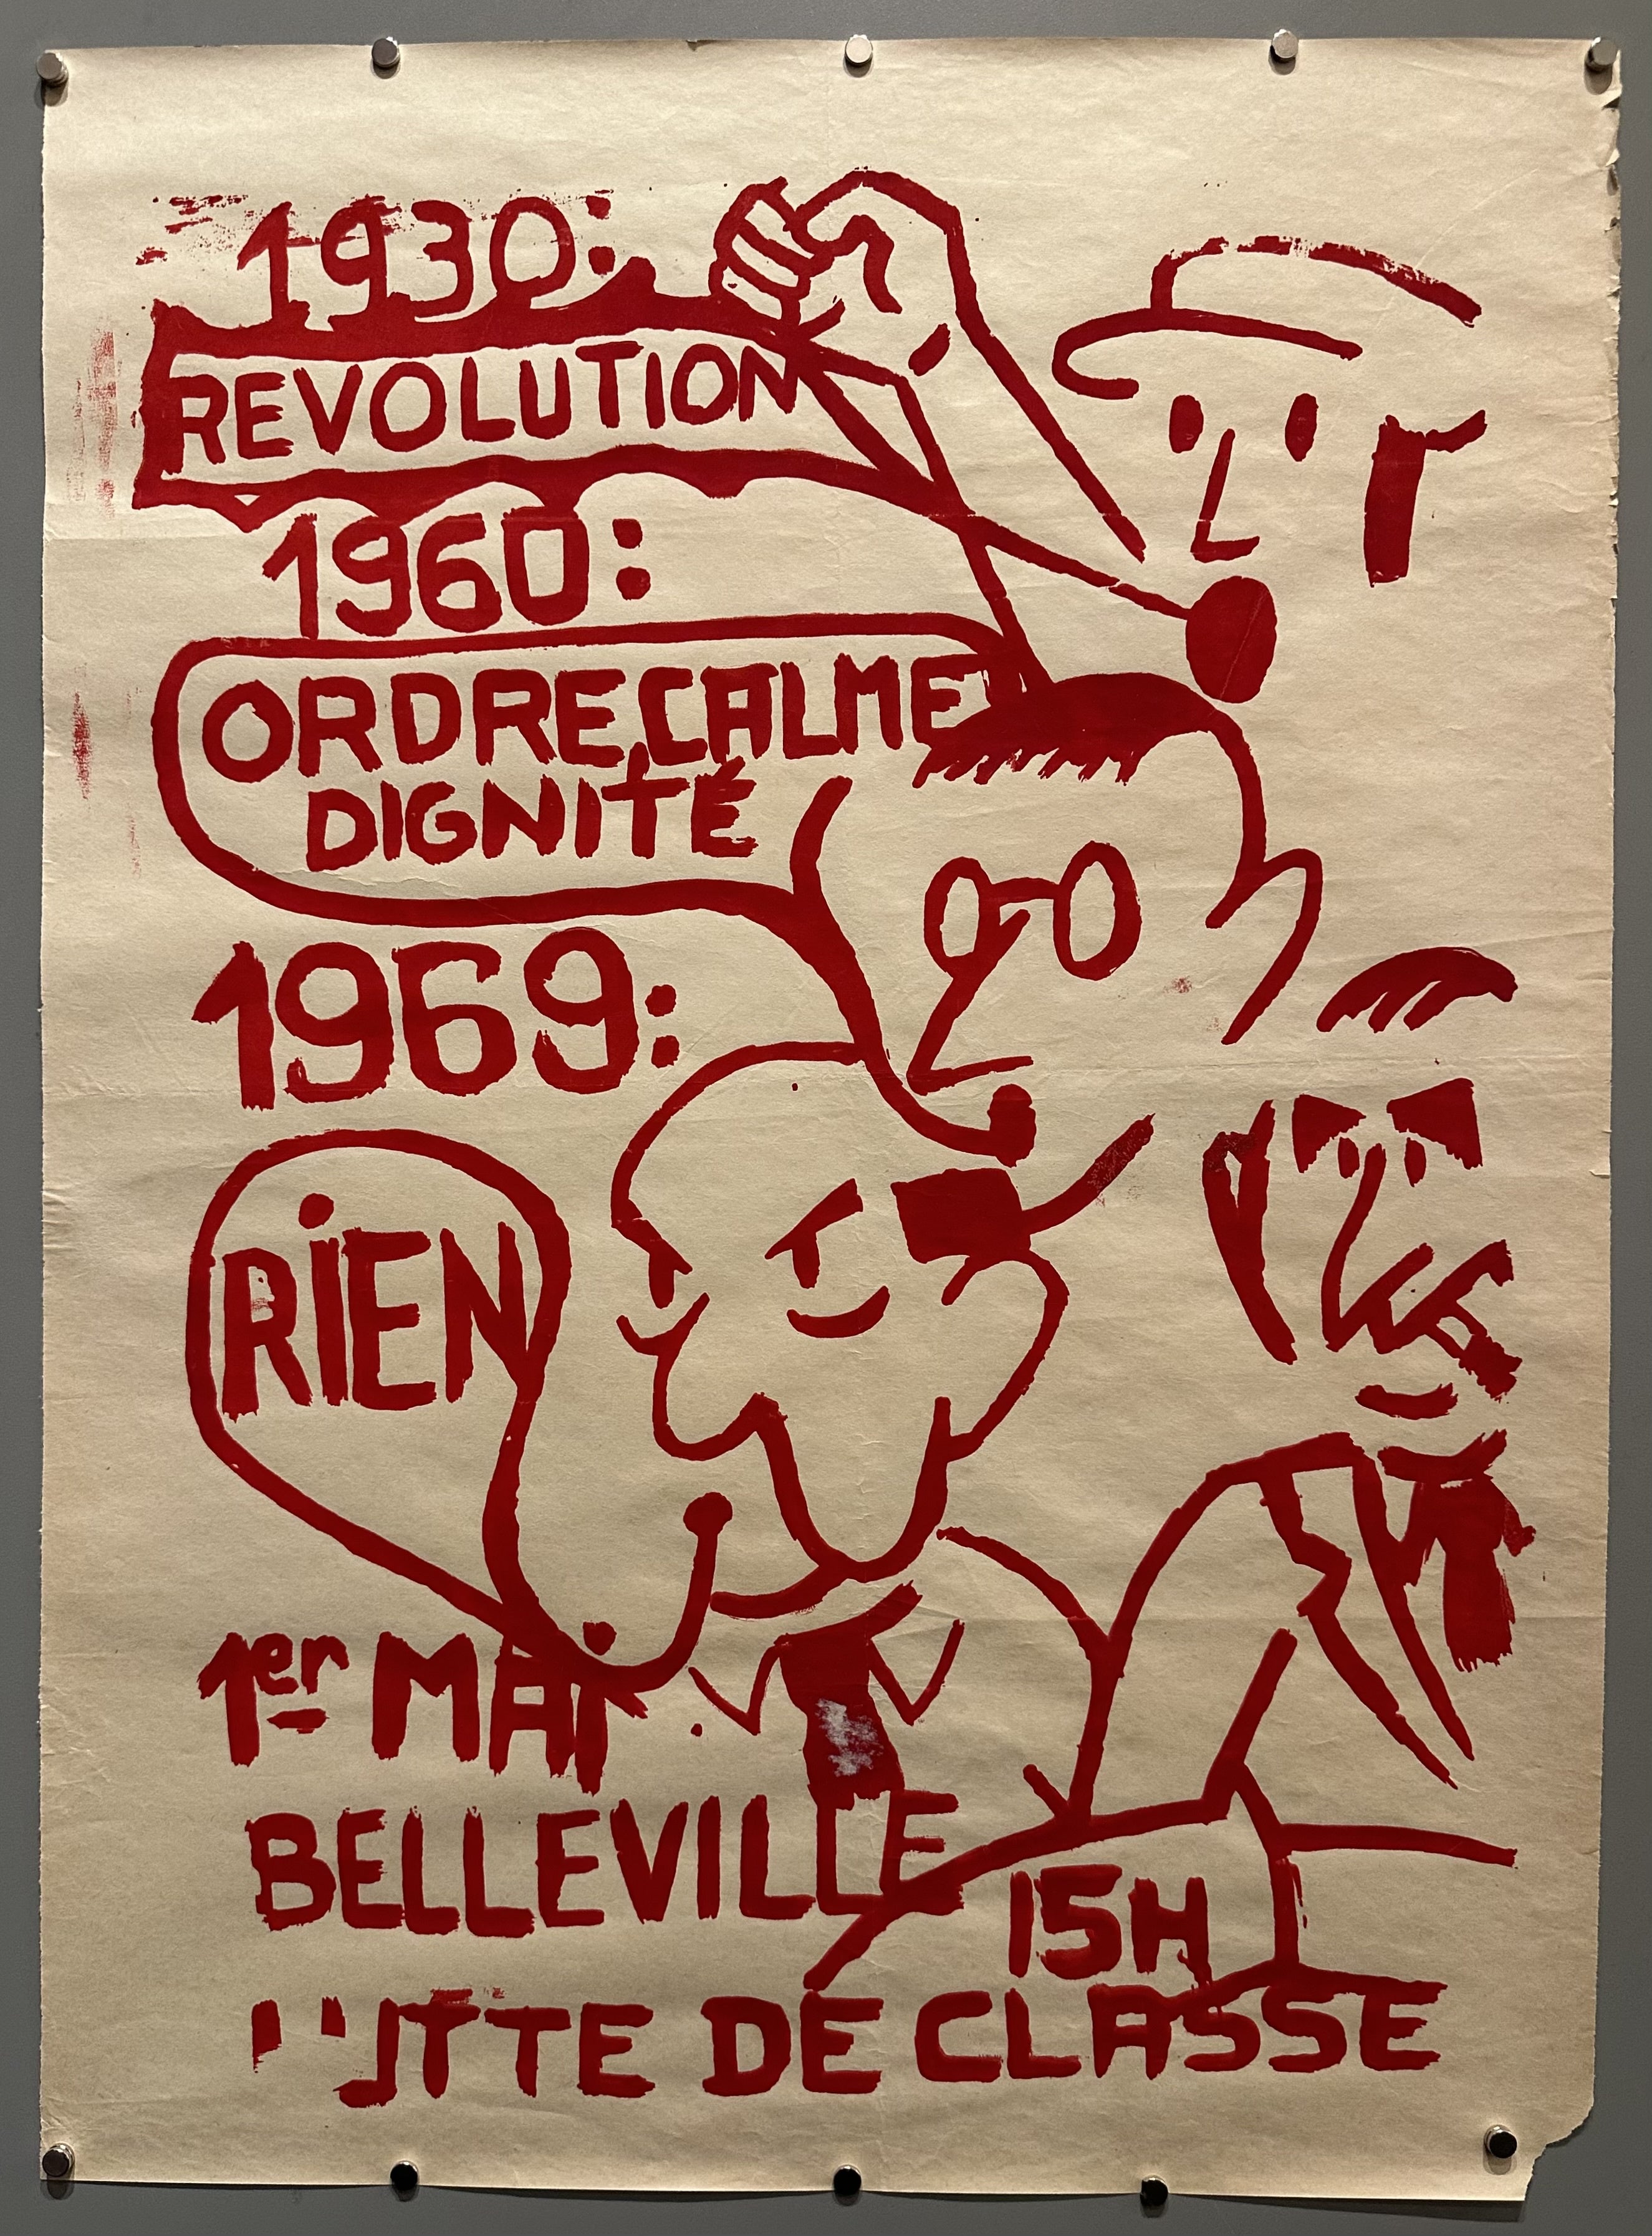 1930:
REVOLUTION
1960:
ORDRE, CALME
DIGNITÉ
1969:
RiEN
1er MAI
BELLEVILLE
15H
LUTTE DE CLASSE